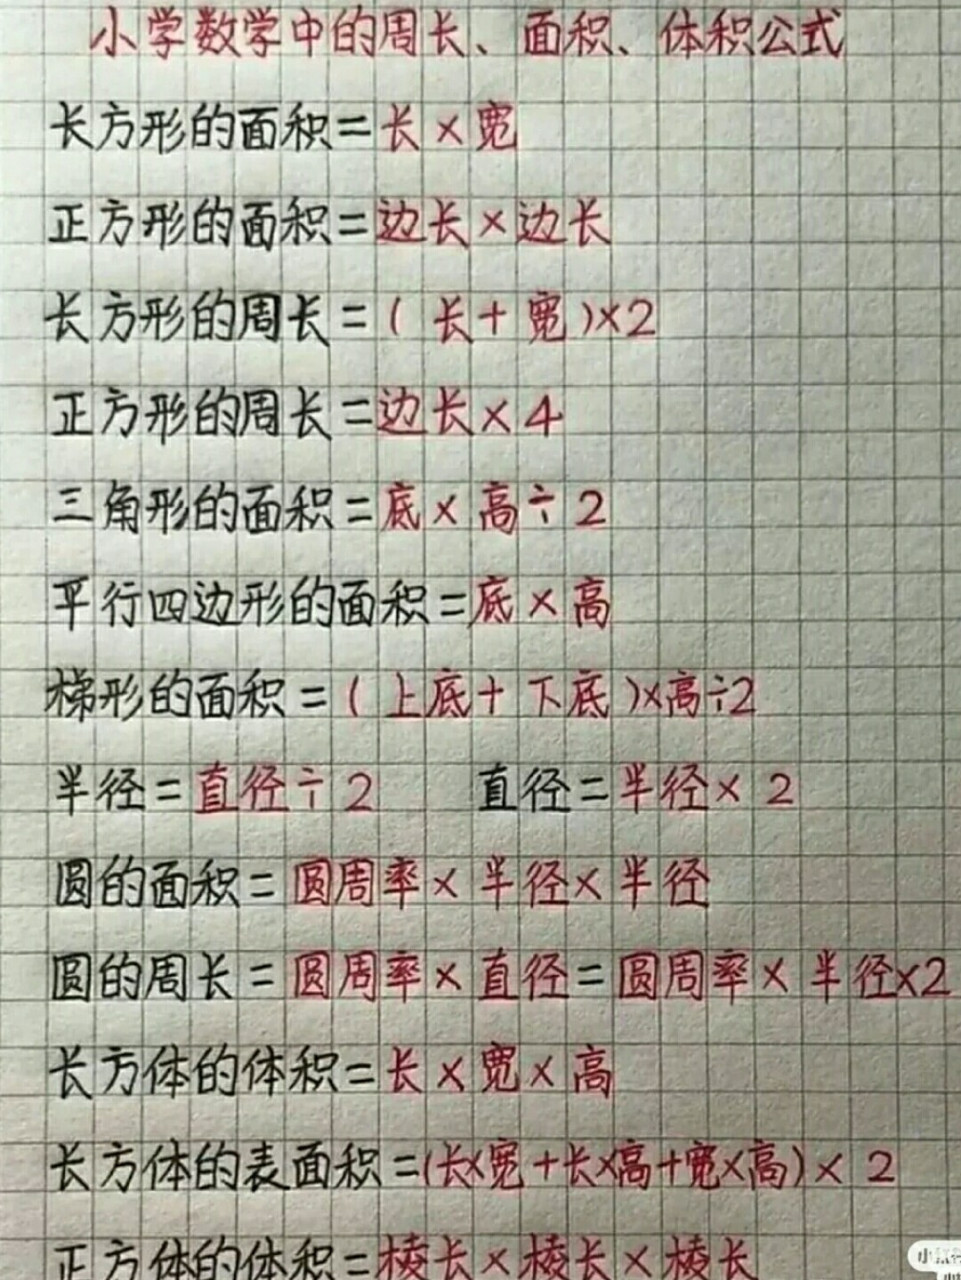 小学数学中的周长、面积、体积公式
长方形的面积=长×宽
正方形的面积=边长×边长
长方形的周长=(长+宽)×2
正方形的周长=边长×4
三角形的面积=底×高÷2
平行四边形的面积=底×高
梯形的面积=(上底+下底)×高÷2
半径=直径÷2 直径=半径×2
圆的面积=圆周率×半径×半径
圆的周长=圆周率×直径=圆周率×半径×2
长方体的体积=长×宽×高
长方体的表面积=(长×宽+长×高+宽×高)×2
正方体的体积=棱长×棱长×棱长